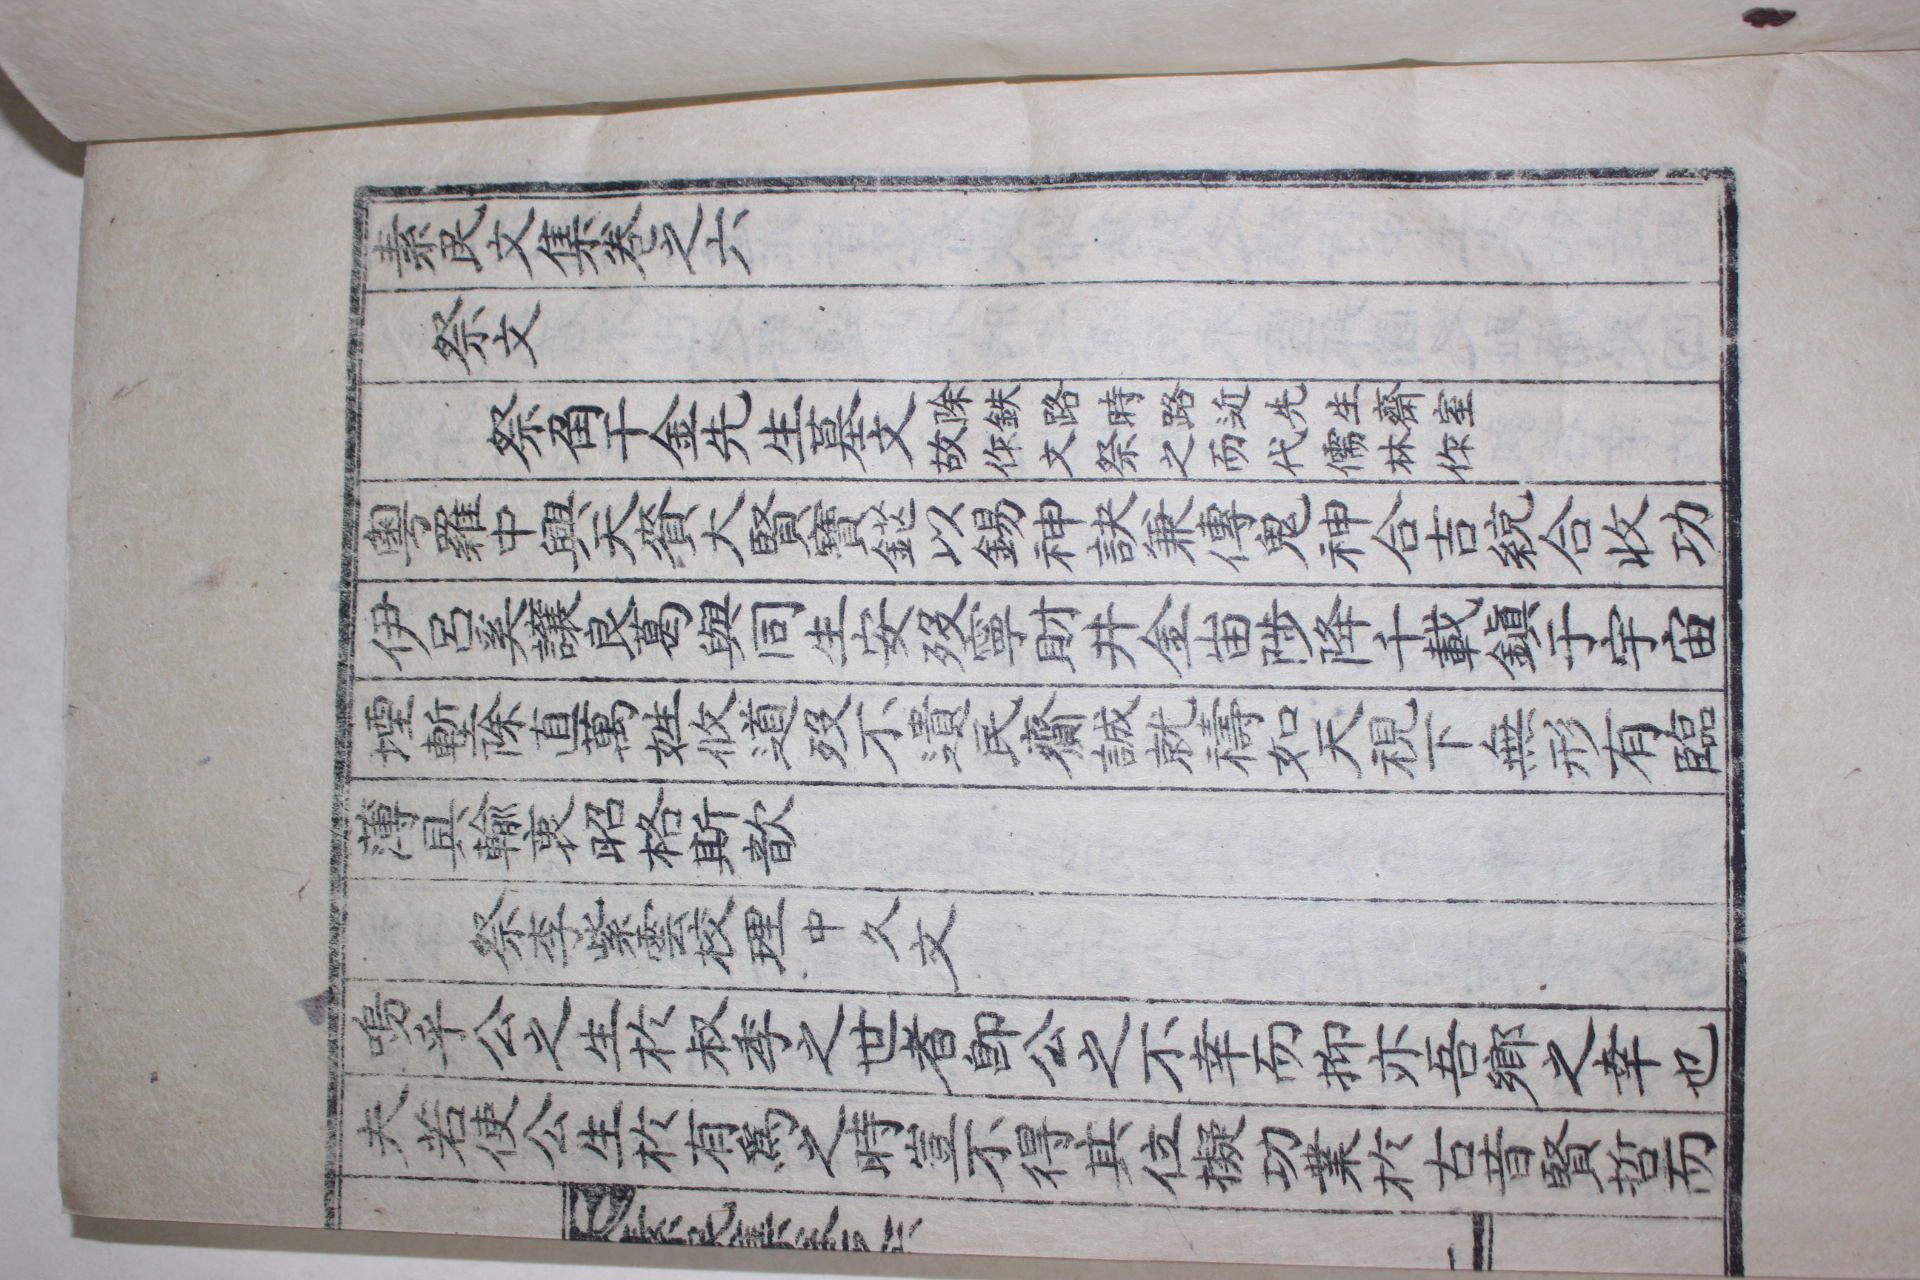 素民文集卷之六
祭文
祭角干金先生墓文
除鉄路時路近先生齋室
故作文祭之而代儒林作
粤羅中興天賚大賢寶以錫神訣兼傳鬼神合吉統合收功
伊呂奚讓良葛與同生安歿寧財井金陟降千載鎭于宇宙
堙塹除直萬姓攸道役不瀆民齋誠就禱如天視下無形有臨
薄具輸衷昭格斯歆
祭李紫雲校理中久文
嗚乎公之生於叔季之世者卽公之不幸而抑亦吾鄕之幸也
夫若使公生於有爲之時豈不得其位擬功業於古昔賢哲而